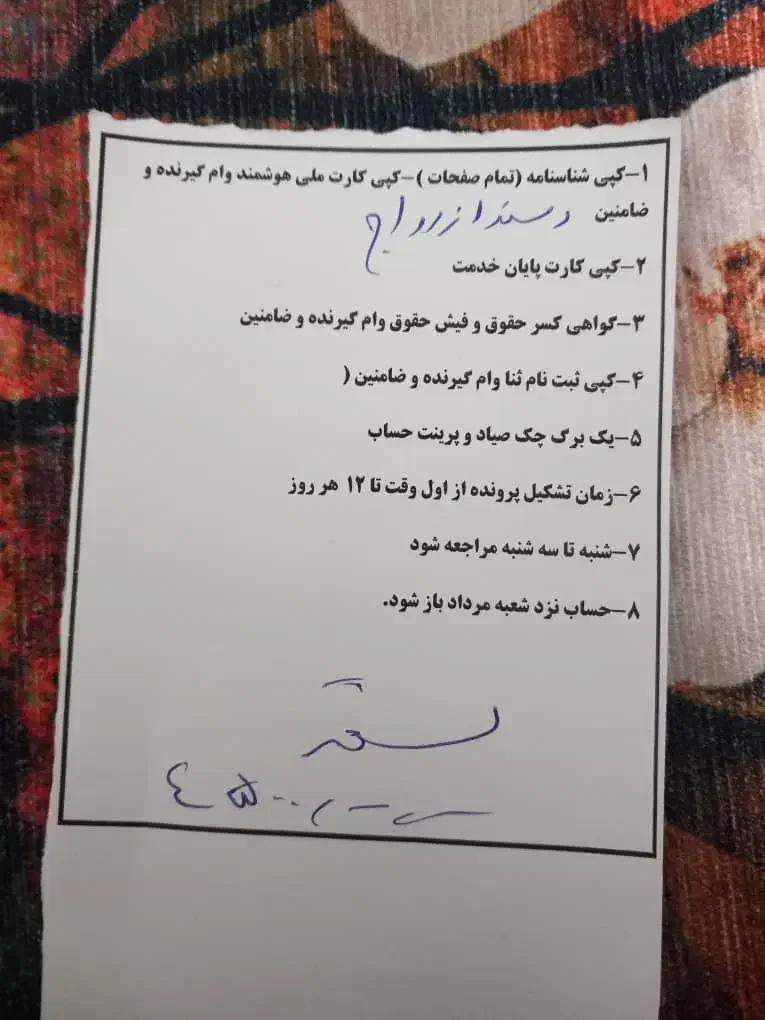 ۱-کپی شناسنامه (تمام صفحات )-کپی کارت ملی هوشمند وام گیرنده و
ضامنین و سند ازدواج
۲-کپی کارت پایان خدمت
۳-گواهی کسر حقوق و فیش حقوق وام گیرنده و ضامنین
۴-کپی ثبت نام ثنا وام گیرنده و ضامنین (
۵-یک برگ چک صیاد و پرینت حساب
۶-زمان تشکیل پرونده از اول وقت تا ۱۲ هر روز
۷-شنبه تا سه شنبه مراجعه شود
۸-حساب نزد شعبه مرداد باز شود.